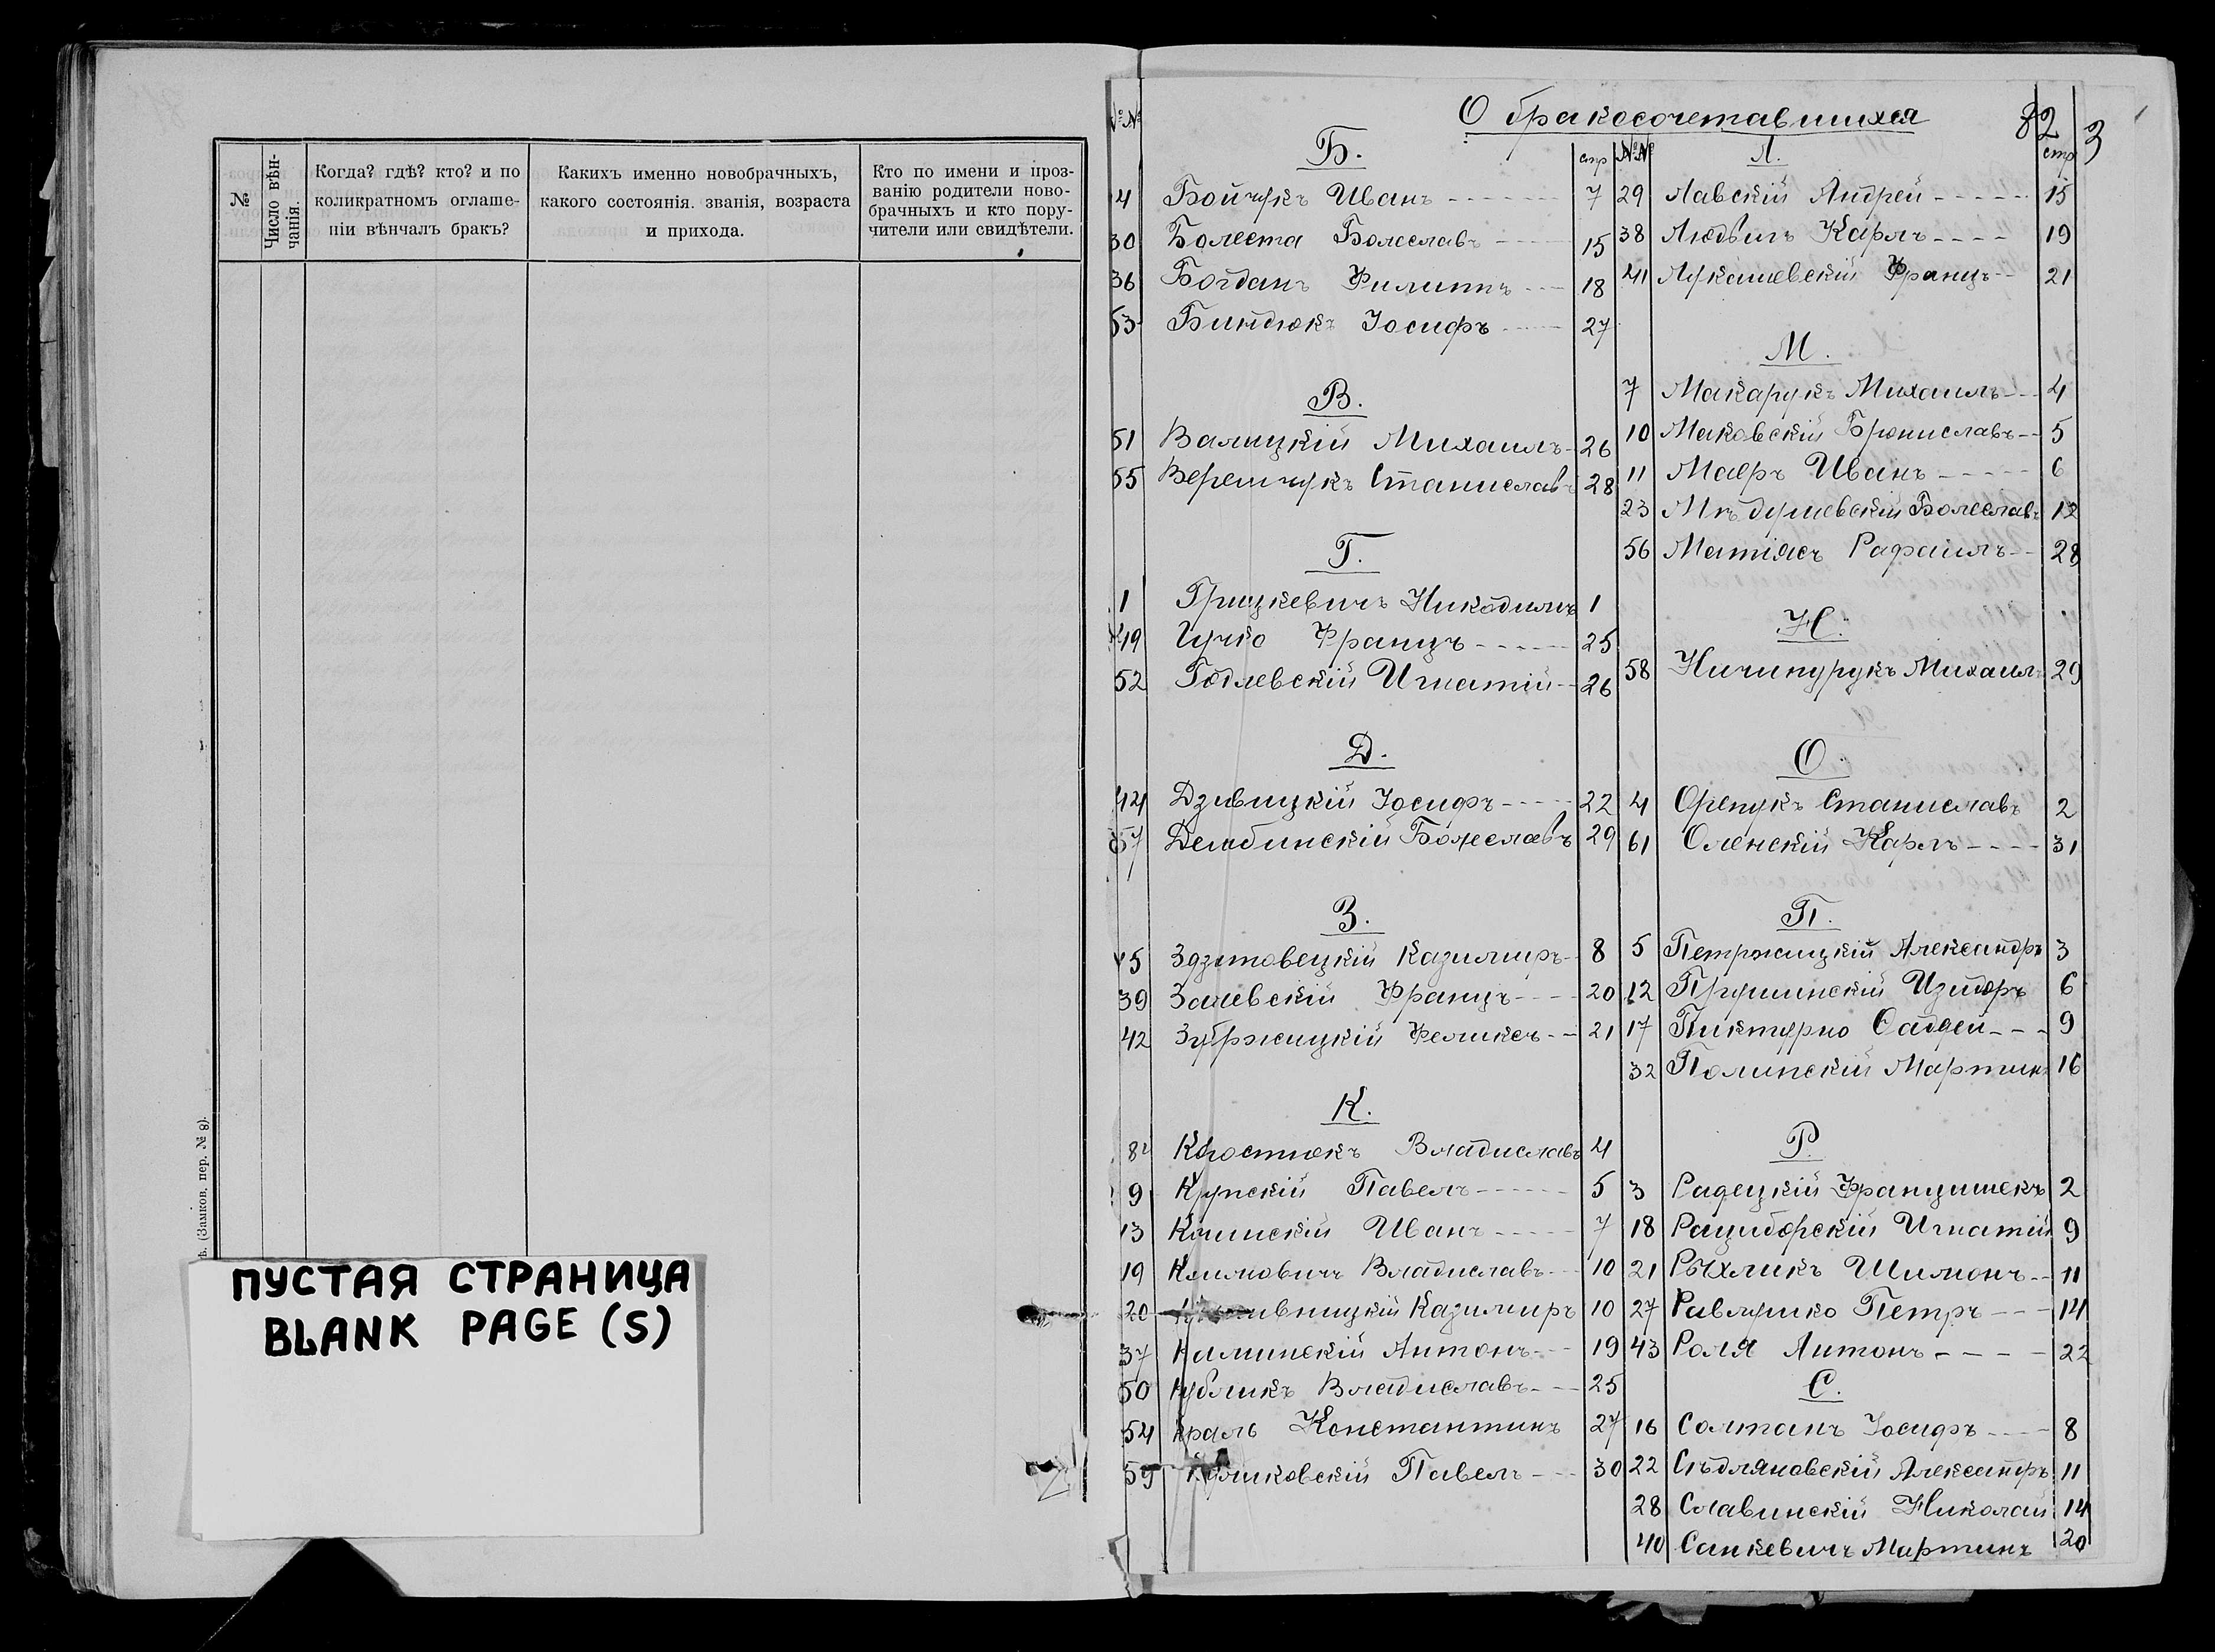 №
Число вѣн-
чанія.
Когда? гдѣ? кто? и по
коликратномъ оглаше-
ніи вѣнчалъ бракъ?
Какихъ именно новобрачныхъ,
какого состоянія. званія, возраста
и прихода.
Кто по имени и проз-
ванію родители ново-
брачныхъ и кто пору-
чители или свидѣтели.
(Замков. пер. № 8).
ПУСТАЯ СТРАНИЦА
BLANK PAGE (S)
О бракосочетавшихся
82
3
№№
Б.
стр
14 Бойчукъ Иванъ 7
30 Болеста Болеславъ 15
36 Богданъ Филиппъ 18
53 Биндюкъ Іосифъ 27
В.
51 Валицкій Михаилъ 26
55 Верешчукъ Станиславъ 28
Г.
1 Грицкевичъ Никодимъ 1
49 Гучко Францъ 25
52 Годлевскій Игнатій 26
Д.
44 Дзивицкій Іосифъ 22
57 Дембинскій Болеславъ 29
З.
15 Здзитовецкій Казимиръ 8
39 Залевскій Францъ 20
42 Зубржицкій Феликсъ 21
К.
8 Костюкъ Владиславъ 4
9 Крупскій Павелъ 5
13 Клинскій Иванъ 7
19 Климовичъ Владиславъ 10
20 Казимиръ 10
37 Калинскій Антонъ 19
50 Кубликъ Владиславъ 25
54 Краль Константинъ 27
59 Павелъ 30
№№
Л.
стр
29 Лавскій Андрей 15
38 Людвигъ Карлъ 19
41 Лукашевскій Францъ 21
М.
7 Макарукъ Михаилъ 4
10 Маковскій Брониславъ 5
11 Маеръ Иванъ 6
23 Мѣдушевскій Болеславъ 12
56 Матіясъ Рафаилъ 28
Н.
58 Ничипурукъ Михаилъ 29
О.
4 Орепукъ Станиславъ 2
61 Оленскій Карлъ 31
П.
5 Петржицкій Александръ 3
12 Прушинскій Изидоръ 6
17 Пиктурно Фаддей 9
32 Полинскій Мартинъ 16
Р.
3 Радецкій Францишекъ 2
18 Рациборскій Игнатій 9
21 Рыхликъ Шимонъ 11
27 Равлушко Петръ 14
43 Роля Антонъ 22
С.
16 Солтанъ Іосифъ 8
22 Сѣдляновскій Александръ 11
28 Славинскій Николай 14
40 Санкевичъ Мартинъ 20